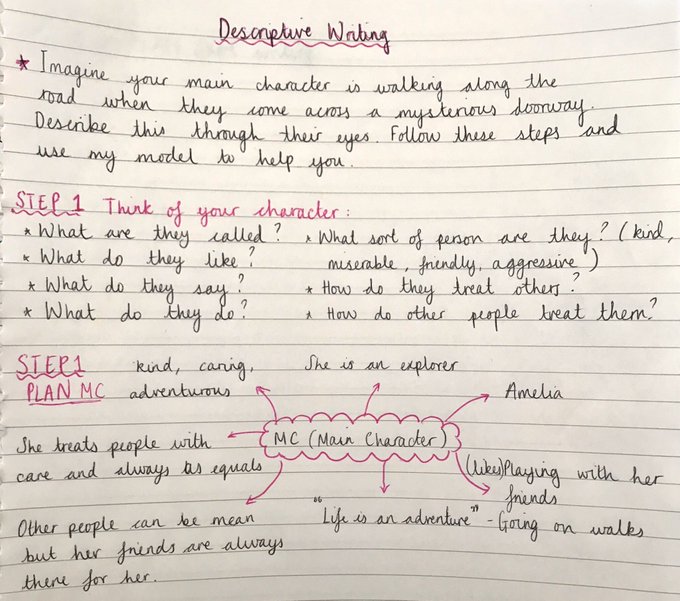 Descriptive Writing
* Imagine your main character is walking along the
road when they come across a mysterious doorway.
Describe this through their eyes. Follow these steps and
use my model to help you.
STEP 1 Think of your character:
* What are they called?
* What do they like?
* What do they say?
* What do they do?
* What sort of person are they? (kind,
miserable, friendly, aggressive)
* How do they treat others?
* How do other people treat them?
STEP 1
PLAN MC
kind, caring,
adventurous
She is an explorer
Amelia
MC (Main Character)
She treats people with
care and always as equals
(likes) Playing with her
friends
- Going on walks
"Life is an adventure"
Other people can be mean
but her friends are always
there for her.